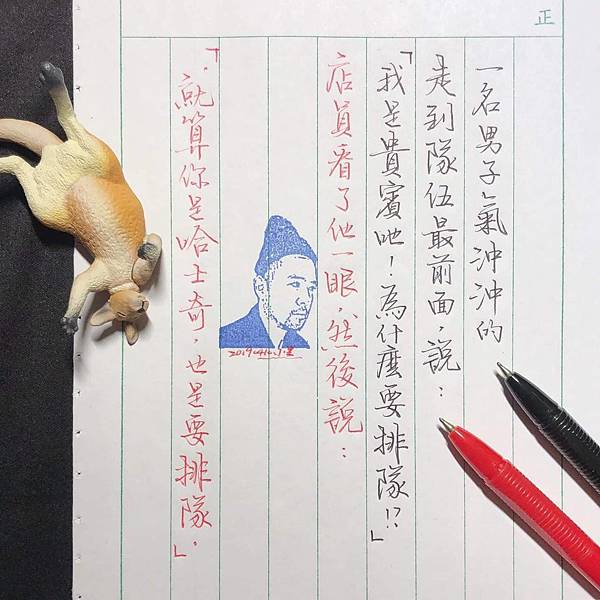 正
一名男子氣沖沖的
走到隊伍最前面，說：
「我是貴賓吔！為什麼要排隊!?」
店員看了他一眼，然後說：
「就算你是哈士奇，也是要排隊。」